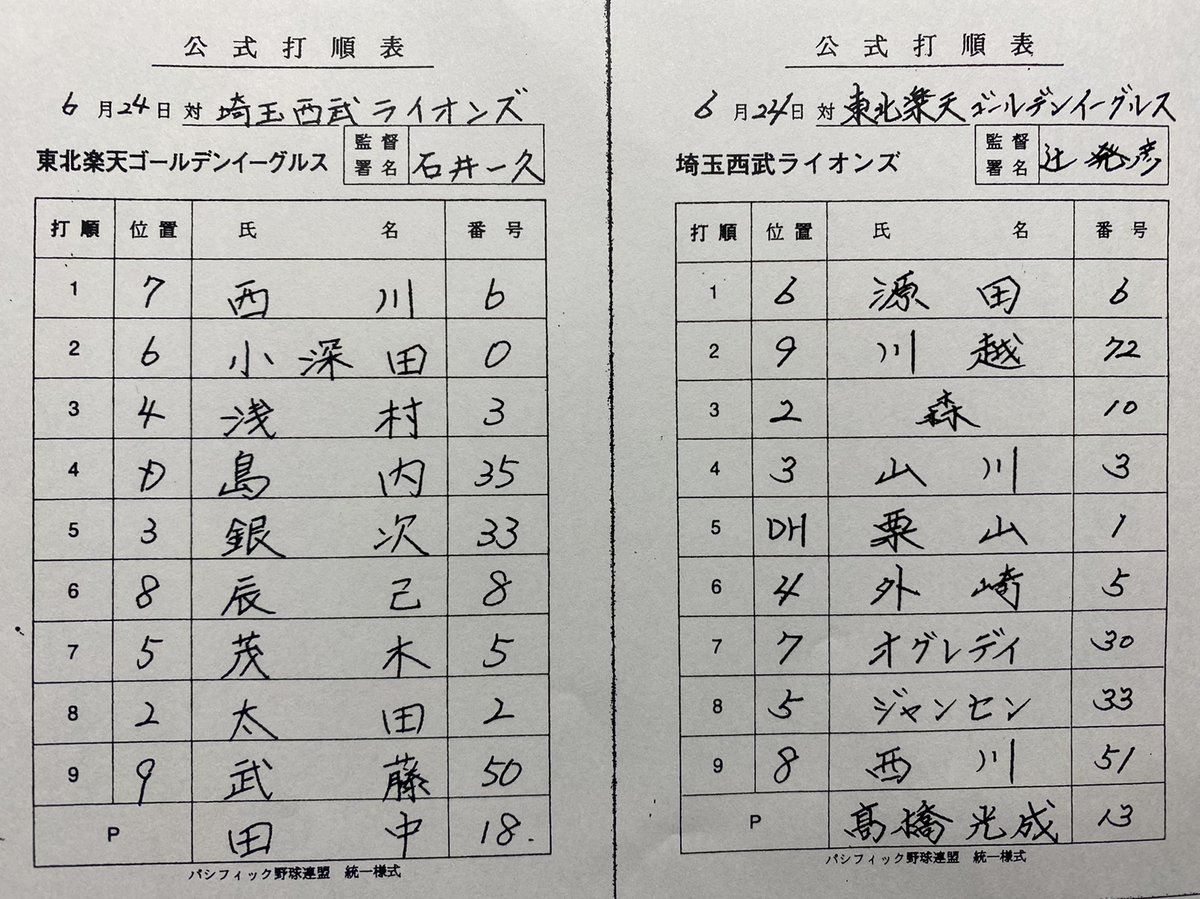 公式打順表
6月24日 対 埼玉西武ライオンズ
東北楽天ゴールデンイーグルス 監督署名 石井一久
打順 位置 氏名 番号
1 7 西川 6
2 6 小深田 0
3 4 浅村 3
4 D 島内 35
5 3 銀次 33
6 8 辰己 8
7 5 茂木 5
8 2 太田 2
9 9 武藤 50
P 田中 18.
パシフィック野球連盟 統一様式
公式打順表
6月24日 対 東北楽天ゴールデンイーグルス
埼玉西武ライオンズ 監督署名 辻発彦
打順 位置 氏名 番号
1 6 源田 6
2 9 川越 72
3 2 森 10
4 3 山川 3
5 DH 栗山 1
6 4 外崎 5
7 7 オグレディ 30
8 5 ジャンセン 33
9 8 西川 51
P 髙橋光成 13
パシフィック野球連盟 統一様式